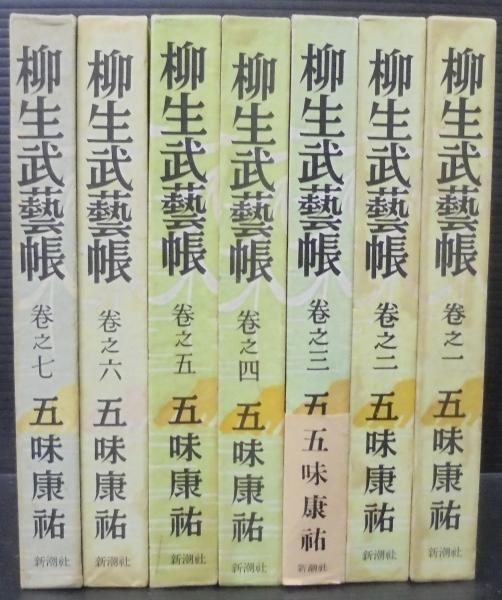 柳生武藝帳 巻之一 五味康祐 新潮社
柳生武藝帳 巻之二 五味康祐 新潮社
柳生武藝帳 巻之三 五
五味康祐 新潮社
柳生武藝帳 巻之四 五味康祐 新潮社
柳生武藝帳 巻之五 五味康祐 新潮社
柳生武藝帳 巻之六 五味康祐 新潮社
柳生武藝帳 巻之七 五味康祐 新潮社